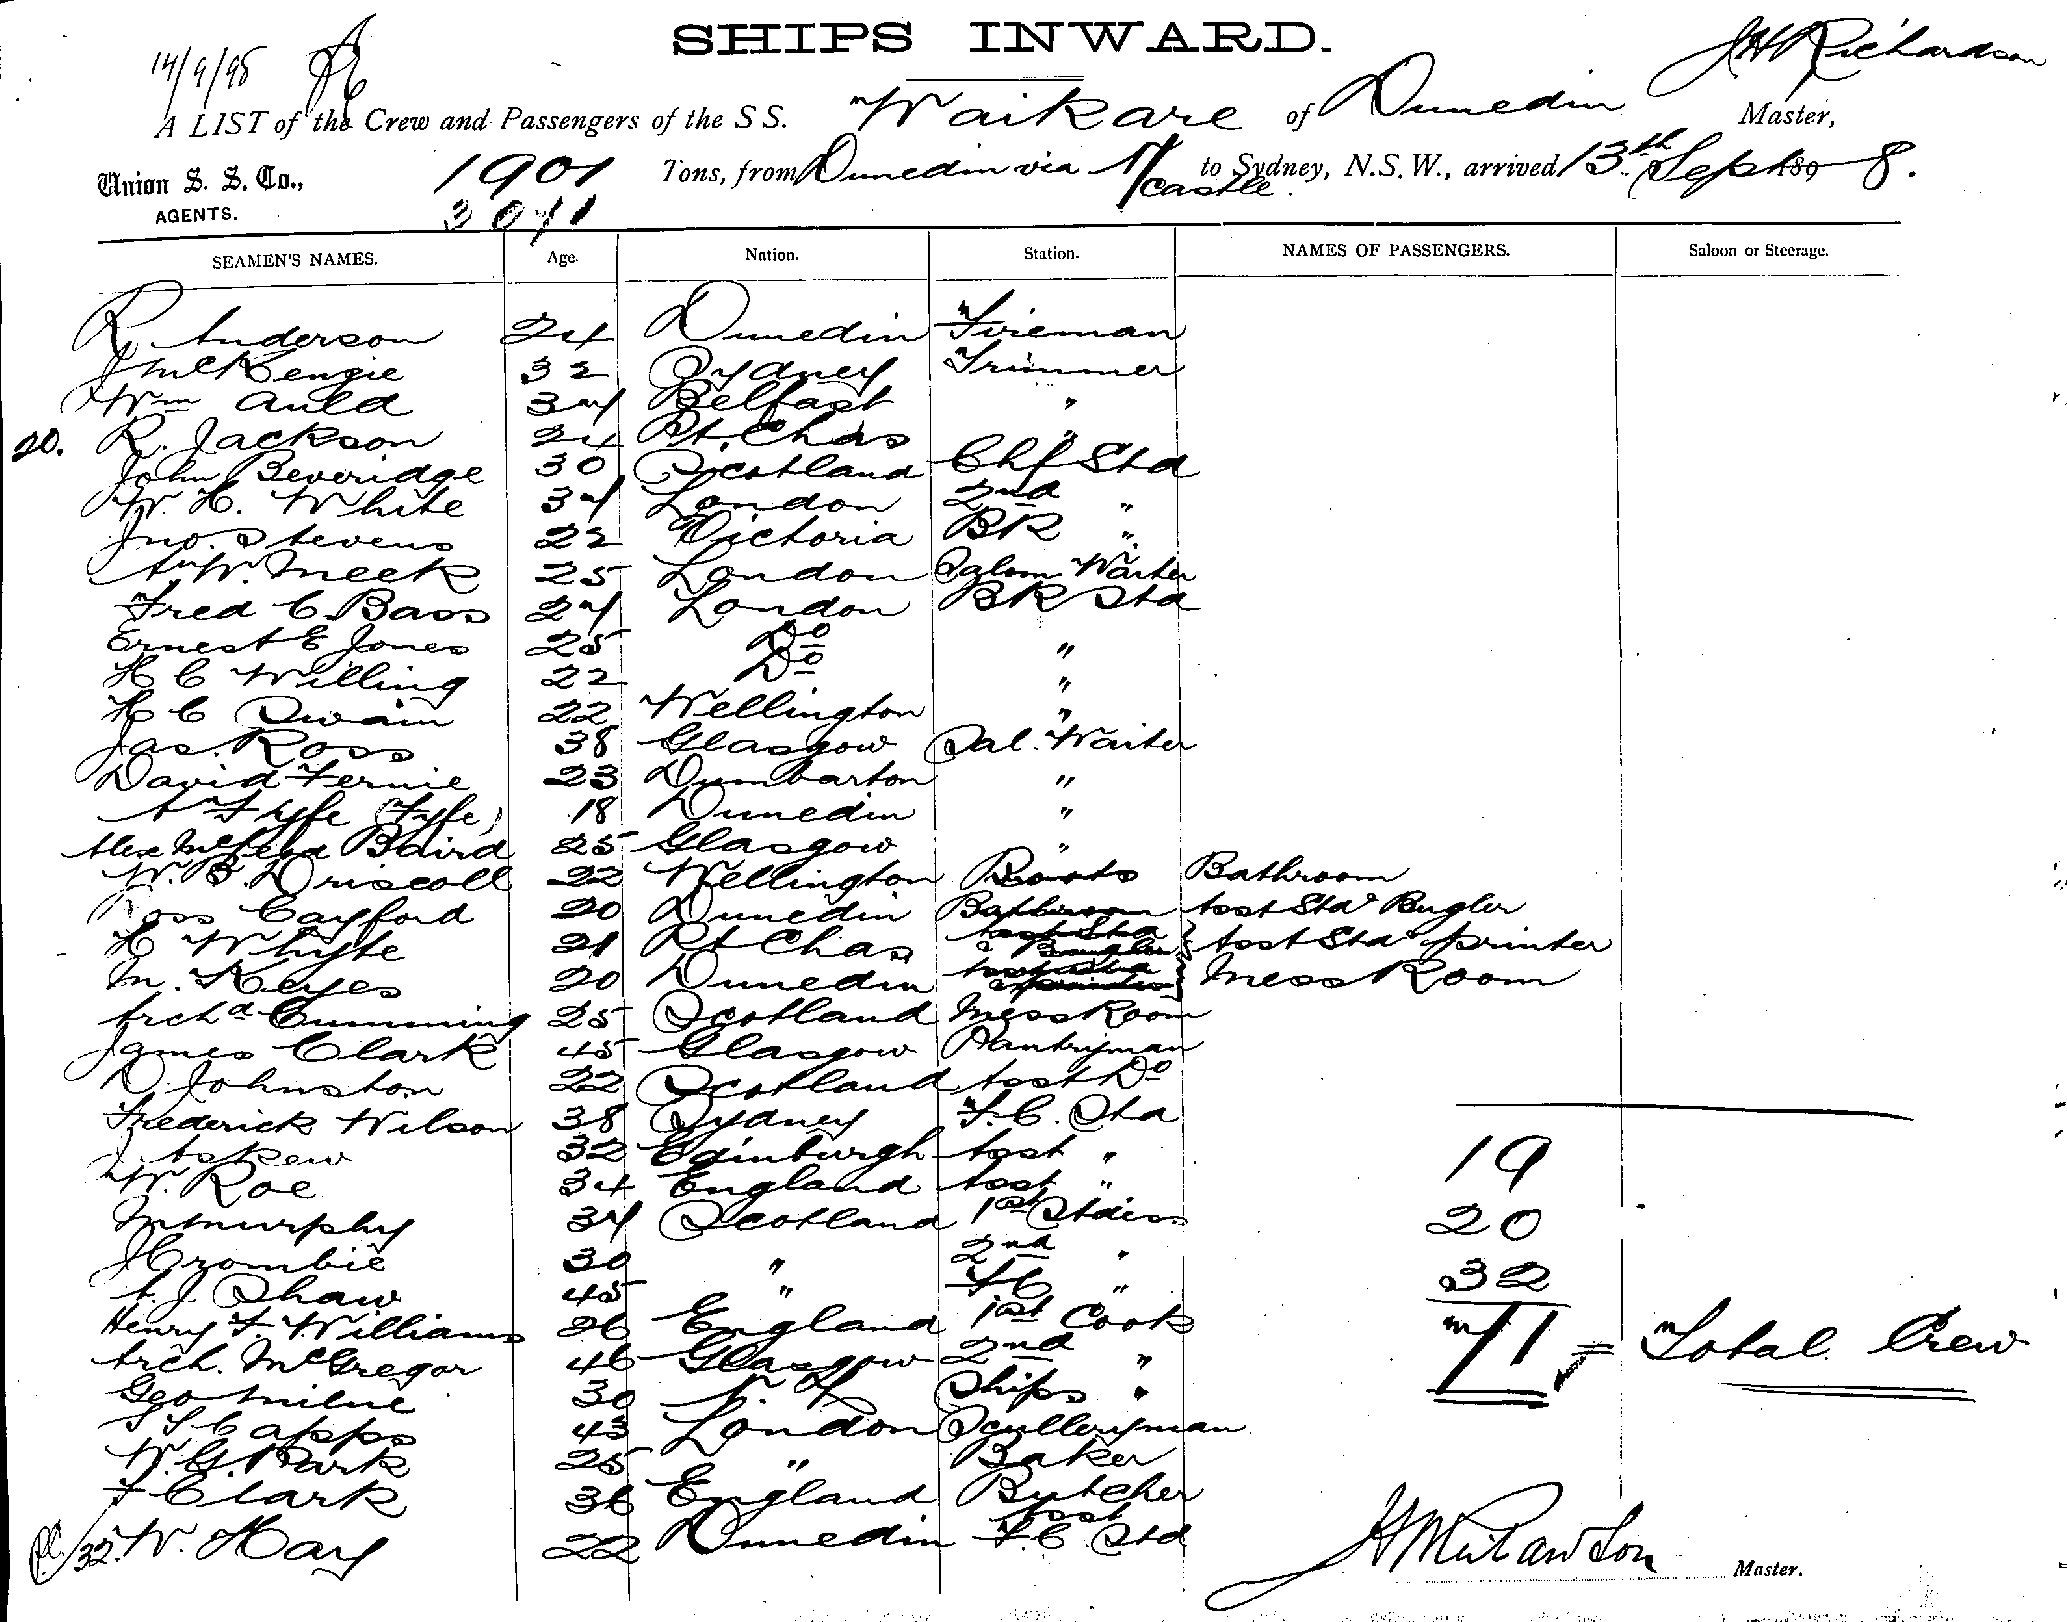 SHIPS INWARD.
14/9/98
J H Richardson
A LIST of the Crew and Passengers of the S S. Waikare of Dunedin Master,
Union S. S. Co., 1901 Tons, from Dunedin via N/castle to Sydney, N.S.W., arrived 13th Sept 189 8.
AGENTS. 3071
SEAMEN'S NAMES. Age. Nation. Station. NAMES OF PASSENGERS. Saloon or Steerage.
R. Anderson 24 Dunedin Fireman
J McKenzie 32 Sydney Trimmer
Wm Auld 37 Belfast "
20. R. Jackson 24 Pt. Chas "
John Beveridge 30 Scotland Chf Std
W. H. White 37 London 2nd "
Jno. Stevens 22 Victoria BK "
A. W. Meek 25 London Saloon Waiter
Fred C Bass 27 London BK Std
Ernest E Jones 25 Do "
H C Willing 22 Do "
H C Swain 22 Wellington "
Jas. Ross 38 Glasgow Sal. Waiter
David Fernie 23 Dumbarton "
A Fyfe (Fyfe) 18 Dunedin "
Alex McLeod Baird 25 Glasgow "
W. B. Driscoll 22 Wellington Boots Bathroom
Ross Cayford 20 Dunedin Bathroom Asst Std Bugler
H Whyte 21 Pt Chas Asst Std & Bugler Asst Std printer
M. Keyes 20 Dunedin Asst Std & printer Mess Room
Archd Cumming 25 Scotland Mess Room
James Clark 45 Glasgow Pantryman
D. Johnston 22 Scotland Asst Do
Frederick Wilson 38 Sydney F.C. Std
J Askew 32 Edinburgh Asst "
W. Roe 34 England Asst "
M Murphy 37 Scotland 1st Stdess
J Crombie 30 " 2nd "
A. J. Shaw 45 " FC "
Henry F. Williams 26 England 1st Cook
Arch. McGregor 46 Glasgow 2nd "
Geo Milne 30 N. Z Ships "
S. S. Capps 43 London Sculleryman
W. G. Park 25 " Baker
F Clark 36 England Butcher
32. W. Hay 22 Dunedin Asst F.C Std
19
20
32
71 = Total Crew
Master.